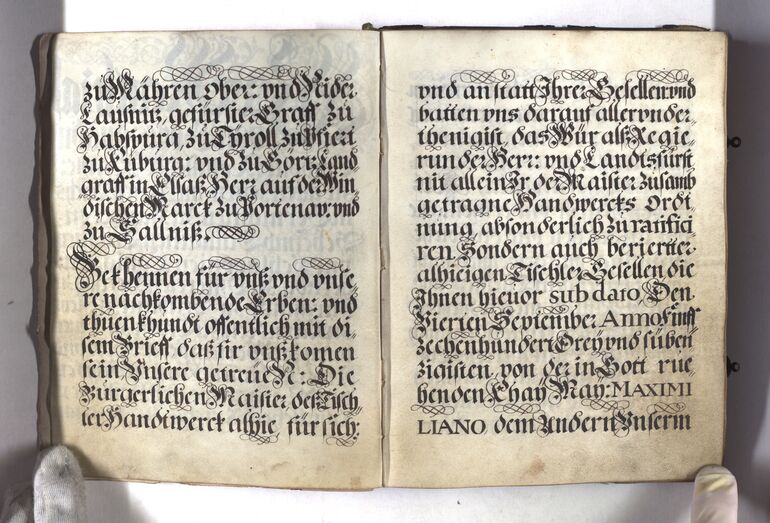 zu Mähren Ober: vnd Nider
Lausniz, gefürster Graff zu
Habspurg zu Tyroll zu Pfiert
zu Kuburg: vnd zu Görz: Land
graff in Elsaß Herz auf der Win
dischen Marck zu Portenaw: vnd
zu Sallniß
Bekhennen für vnß vnd vnse
re nachkombende Erben: vnd
thuen khundt offentlich mit di
sem Brieff daß für vnß komen
sein Vnsere getreue N: Die
Burgerlichen Maister deß Tisch
ler Handtwerck alhie für sich:
vnd an statt Ihrer Gesellen: vnd
batten vns darauf aller vnder
thenigist, das Wür alß Regie
runder Herr: vnd Landtsfürst
nit allein Ir der Maister zusamb
getragne Handwercks Ordi
nung, absonderlich zu ratifici
ren Sondern auch berierter
alhieigen Tischler Gesellen die
Ihnen hieuor sub dato, Den
Vierten September Anno Fünff
zechenhundert Drey vnd süben
zigisten, von der in Gott rue
henden Khay: May: MAXIMI
LIANO, dem Andern Vnserm